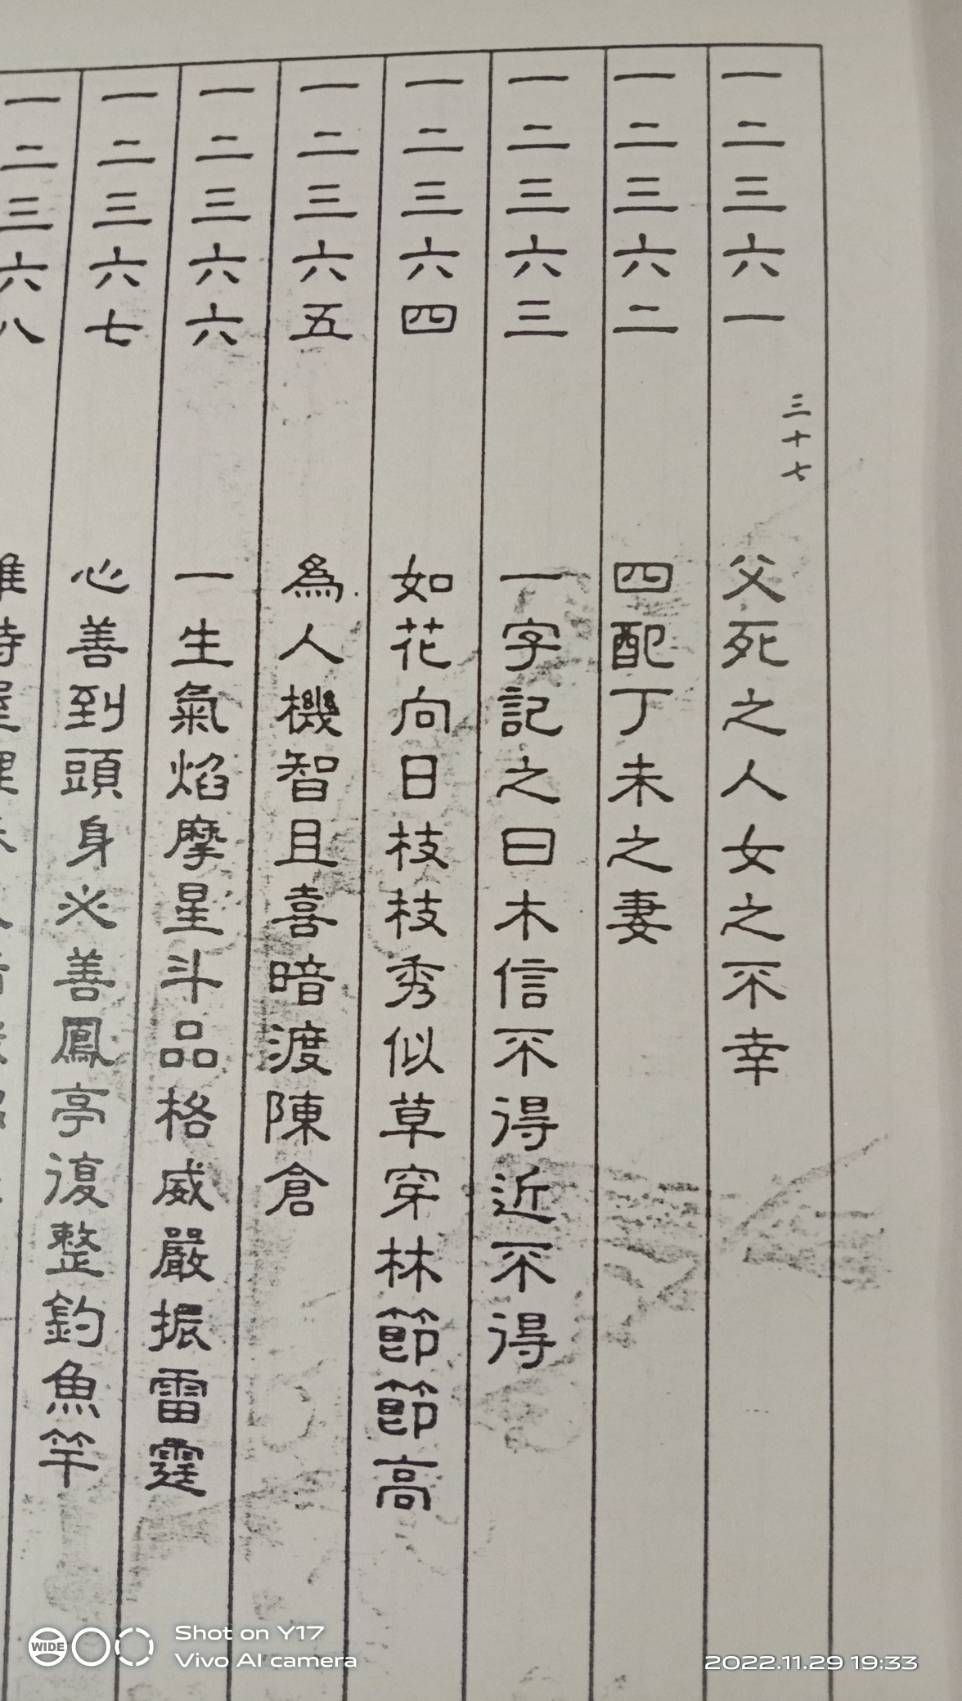 一二三六一 三十七 父死之人女之不幸
一二三六二 四配丁未之妻
一二三六三 一字記之曰木信不得近不得
一二三六四 如花向日枝枝秀似草穿林節節高
一二三六五 為人機智且喜暗渡陳倉
一二三六六 一生氣焰摩星斗品格威嚴振雷霆
一二三六七 心善到頭身必善鳳亭復整釣魚竿
一二三六八
WIDE
Shot on Y17
Vivo AI camera
2022.11.29 19:33